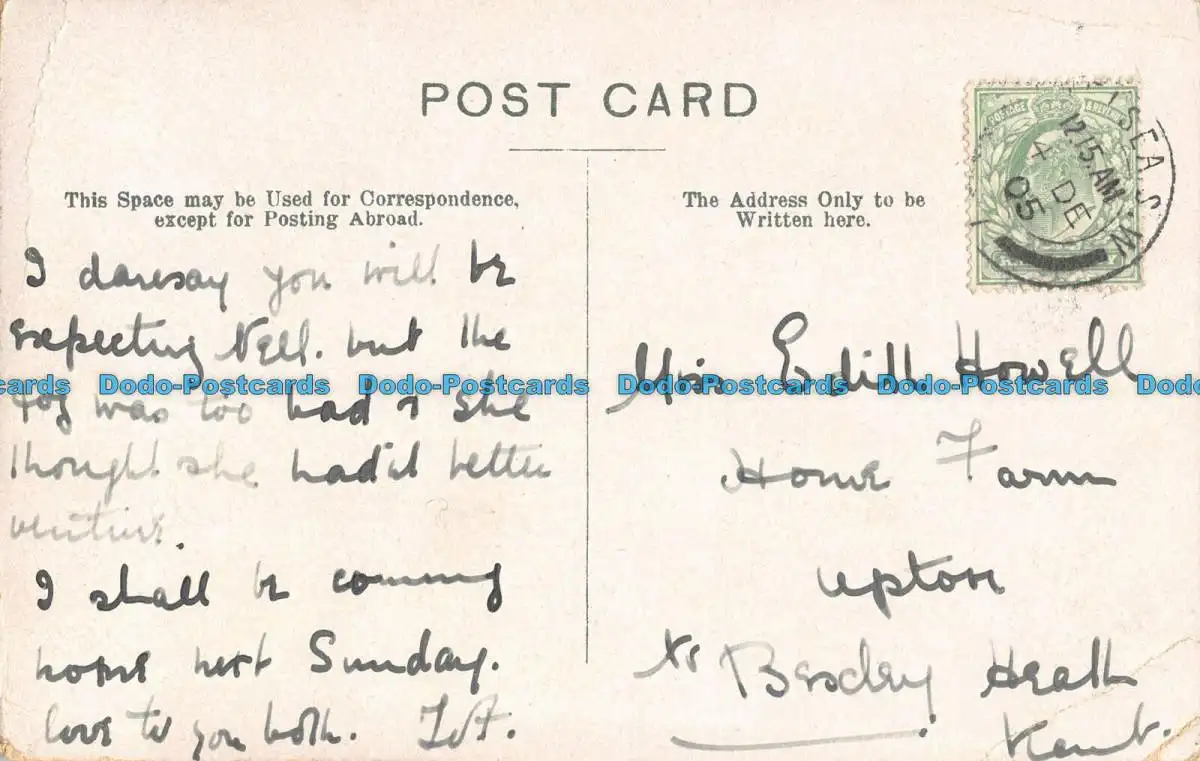 POST CARD
This Space may be Used for Correspondence,
except for Posting Abroad.
I daresay you will be
expecting Nell. but the
fog was too bad & she
thought she had'nt better
venture.
I shall be coming
home next Sunday.
love to you both.
The Address Only to be
Written here.
POSTAGE
SEA S.W.
12.15. AM
4 DE
05
Miss Edith Howell
Home Farm
Upton
Nr Bexley Heath
Kent.
Dodo-Postcards Dodo-Postcards Dodo-Postcards Dodo-Postcards